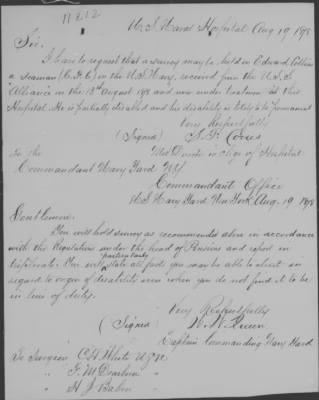 11212
U.S. Naval Hospital Aug 19 1898
Sir:
I have to request that a survey may be held on Edward Collins
a Seaman (C.F.C) in the U.S. Navy, received from the U.S.S
"Alliance" on the 13th August 189 and now under treatment at this
Hospital. He is partially disabled and his disability is likely to be permanent
Very Respectfully
(Signed)
Med Director in chge of Hospital
To the
Commandant Navy Yard NY
Commandant Office
U.S. Navy Yard New York, Aug. 19 189
Gentlemen:
You will hold survey as recommended above in accordance
with the Regulations under the head of Pensions and report in
triplicate. You will particularly state all facts you may be able to elicit in
regard to origin of disability even when you do not find it to be
in line of duty.
Very Respectfully
(Signed)
Captain Commanding Navy Yard
To Surgeon C.H. White U.S.N
" F. M. Dearborn "
" H J Babin "